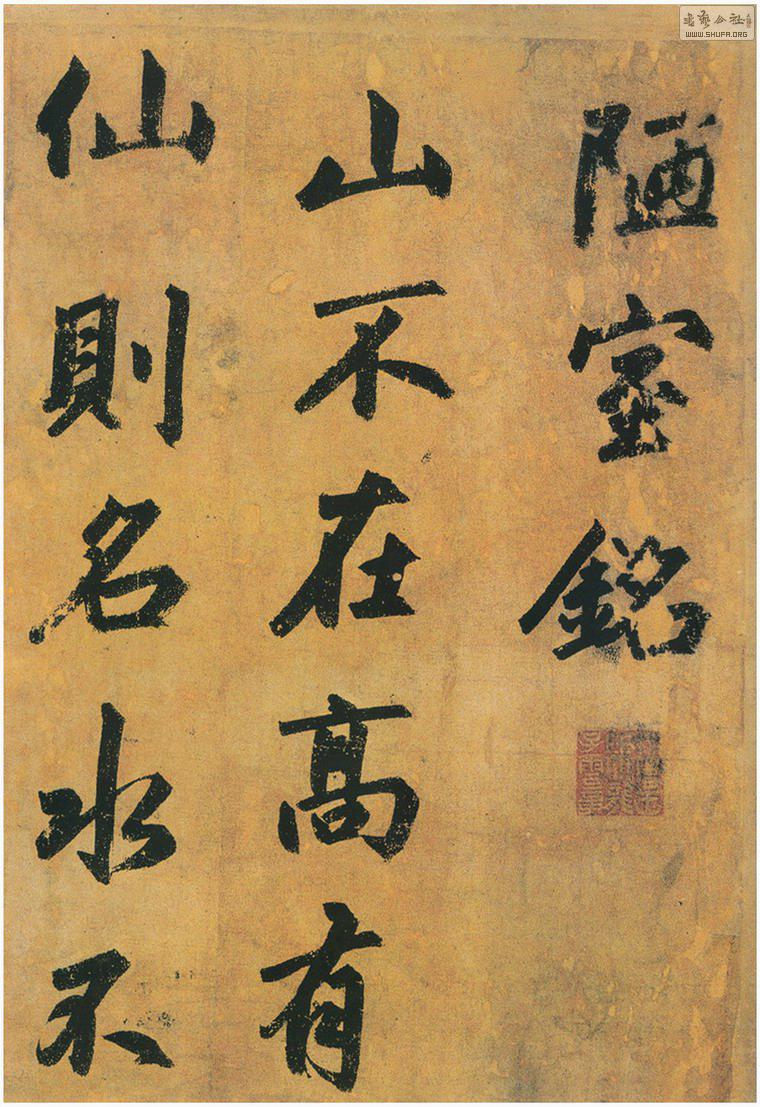 陋室銘
山不在高有
仙則名水不
WWW.SHUFA.ORG